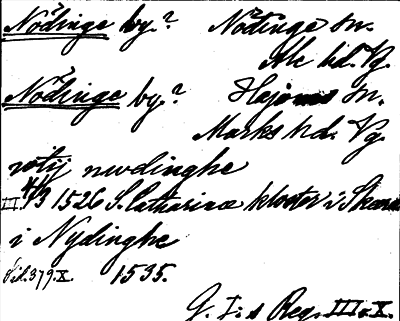 Nödinge by? Nödinge sn.
Ale hd. Vg.
Nödinge by? Hajoms sn.
Marks hd. Vg.
nwdinghe
II. 4/3 1526 S. Catharinæ kloster i Skara
i Nydinghe
Sid. 379. X. 1535.
G. I:s Reg. III o. X.